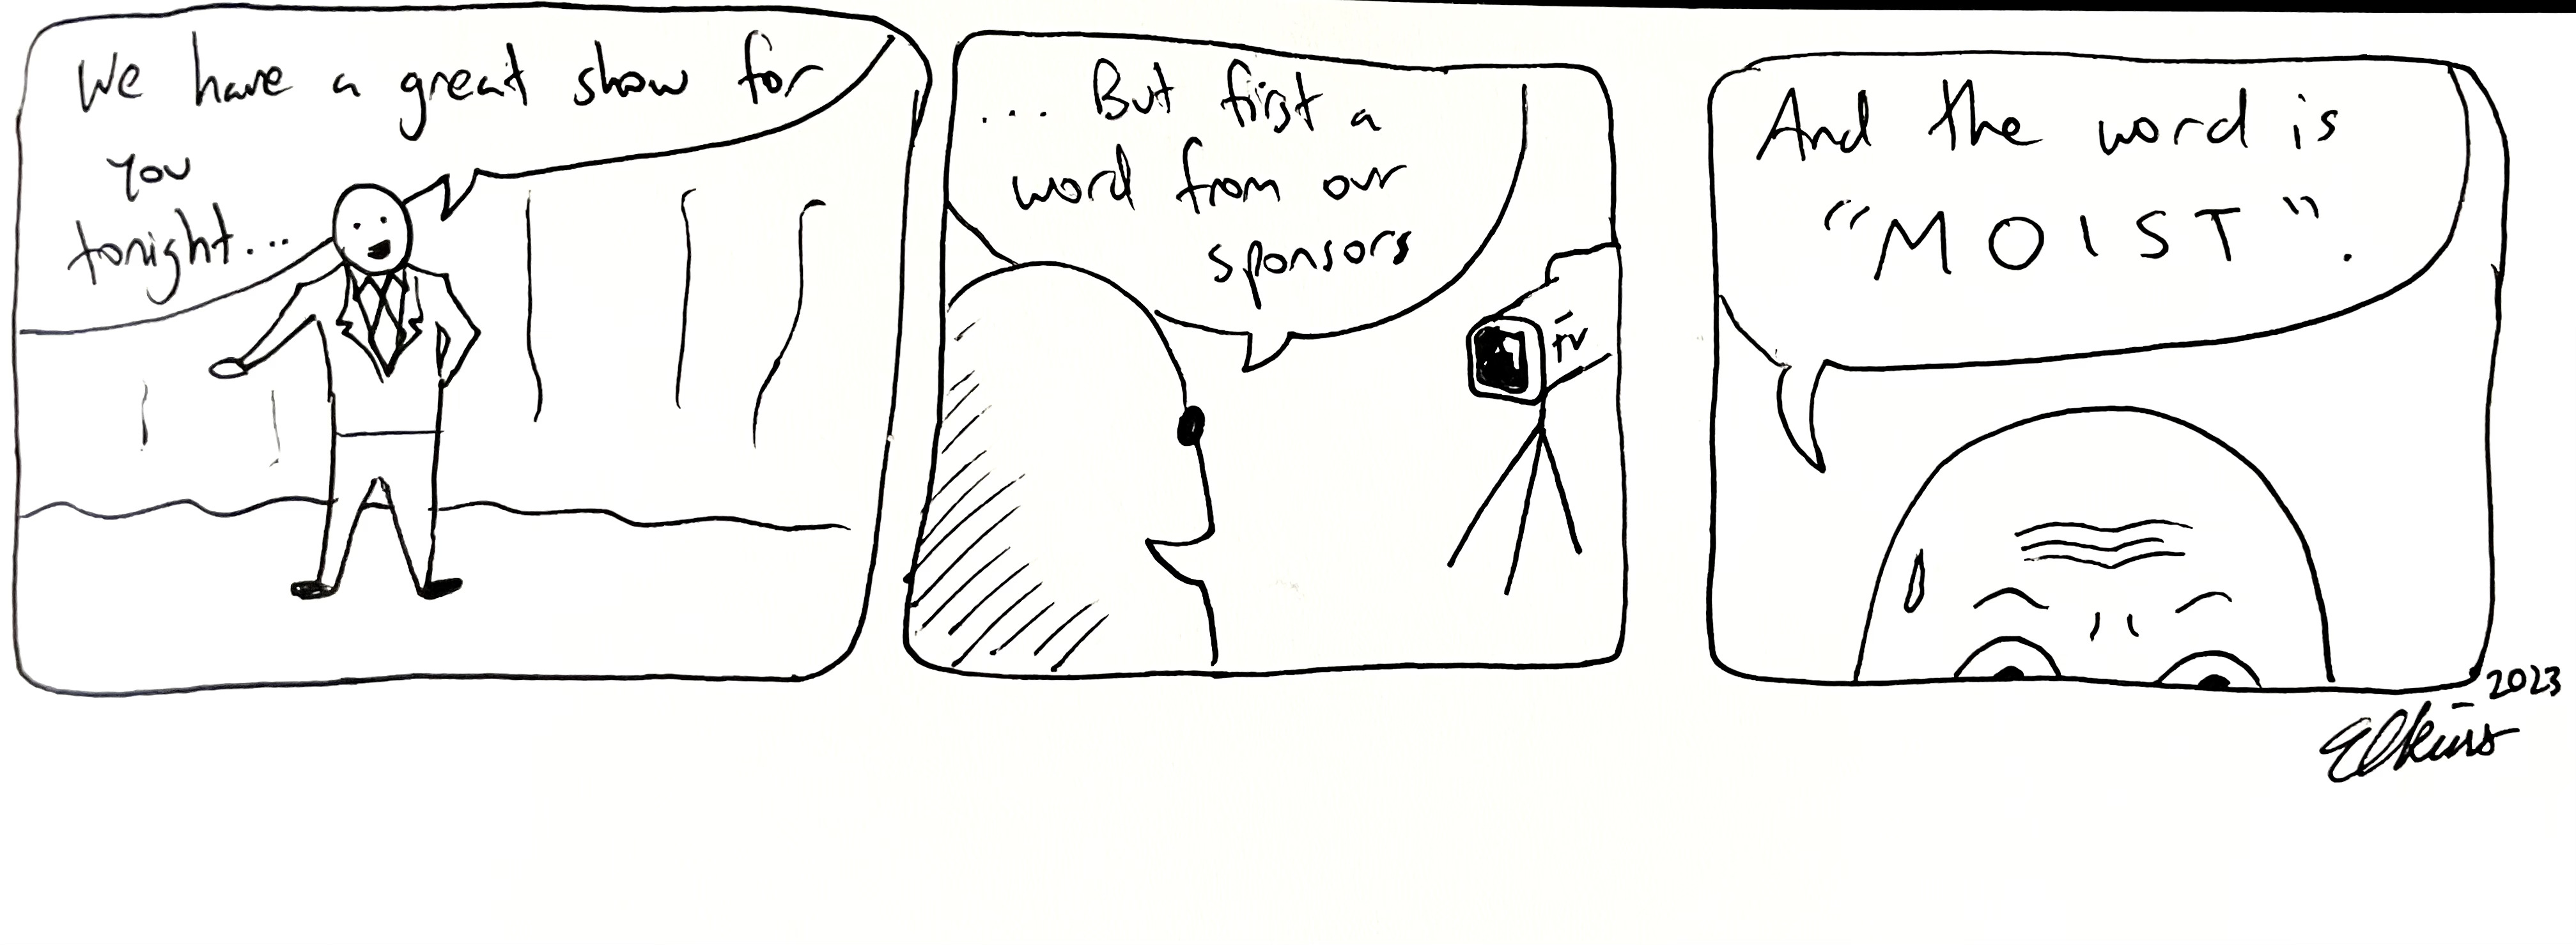 We have a great show for
you
tonight...
... But first a
word from our
sponsors
TV
And the word is
"MOIST".
2023
Elkins